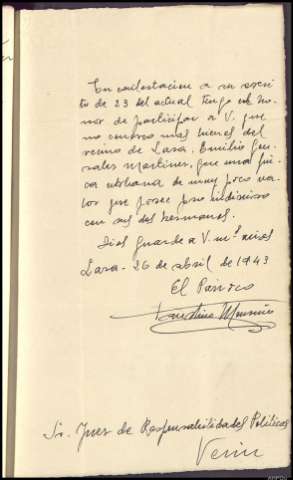 En contestacion a su escri-
to de 23 del actual tengo el ho-
nor de participar a V. que
no conozco mas bienes del
vecino de Laza, Emilio
Martinez, que una fin-
ca urbana de muy poco va-
lor que posee pro indiviso
con sus dos hermanos.
Dios guarde a V. m.s años
Laza - 26 de abril de 1943
El Párroco
Sr. Juez de Responsabilidades Políticas
Verin